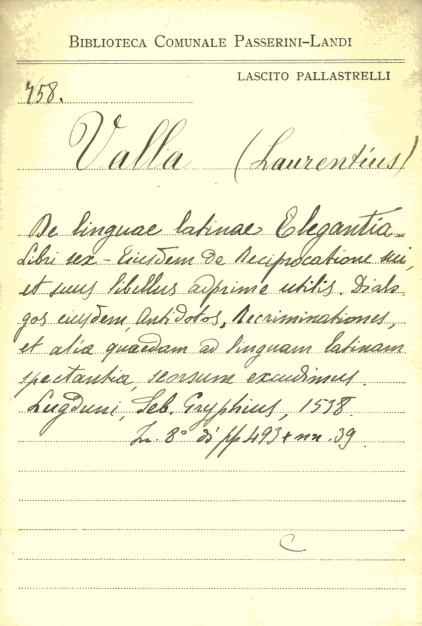 BIBLIOTECA COMUNALE PASSERINI-LANDI
LASCITO PALLASTRELLI
758.
Valla (Laurentius)
De linguae latinae Elegantia
Libri sex - Eiusdem de Reciprocatione sui,
et suus libellus adprime utilis. Dialo
gos eiusdem, Antidotos, Recriminationes,
et alia quaedam ad linguam latinam
spectantia, seorsum excudimus.
Lugduni, Seb. Gryphius, 1538.
In 8° di pp 493 + nn. 39.
C